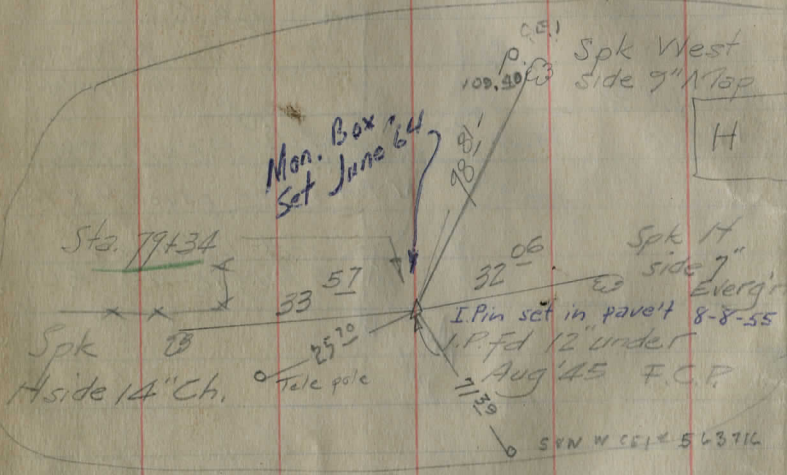 C.E.I
Spk West
side 9" Map
109.90
H
98.81'
Mon. Box
Set June '64
Sta. 79+34
33 57
32 06
Spk H
side 7"
Everg'r
I.Pin set in pave't 8-8-55
I.P. Fd 12" under
Aug '45 F.C.P.
Spk
H side 14" Ch.
25 70
Tele pole
71 39